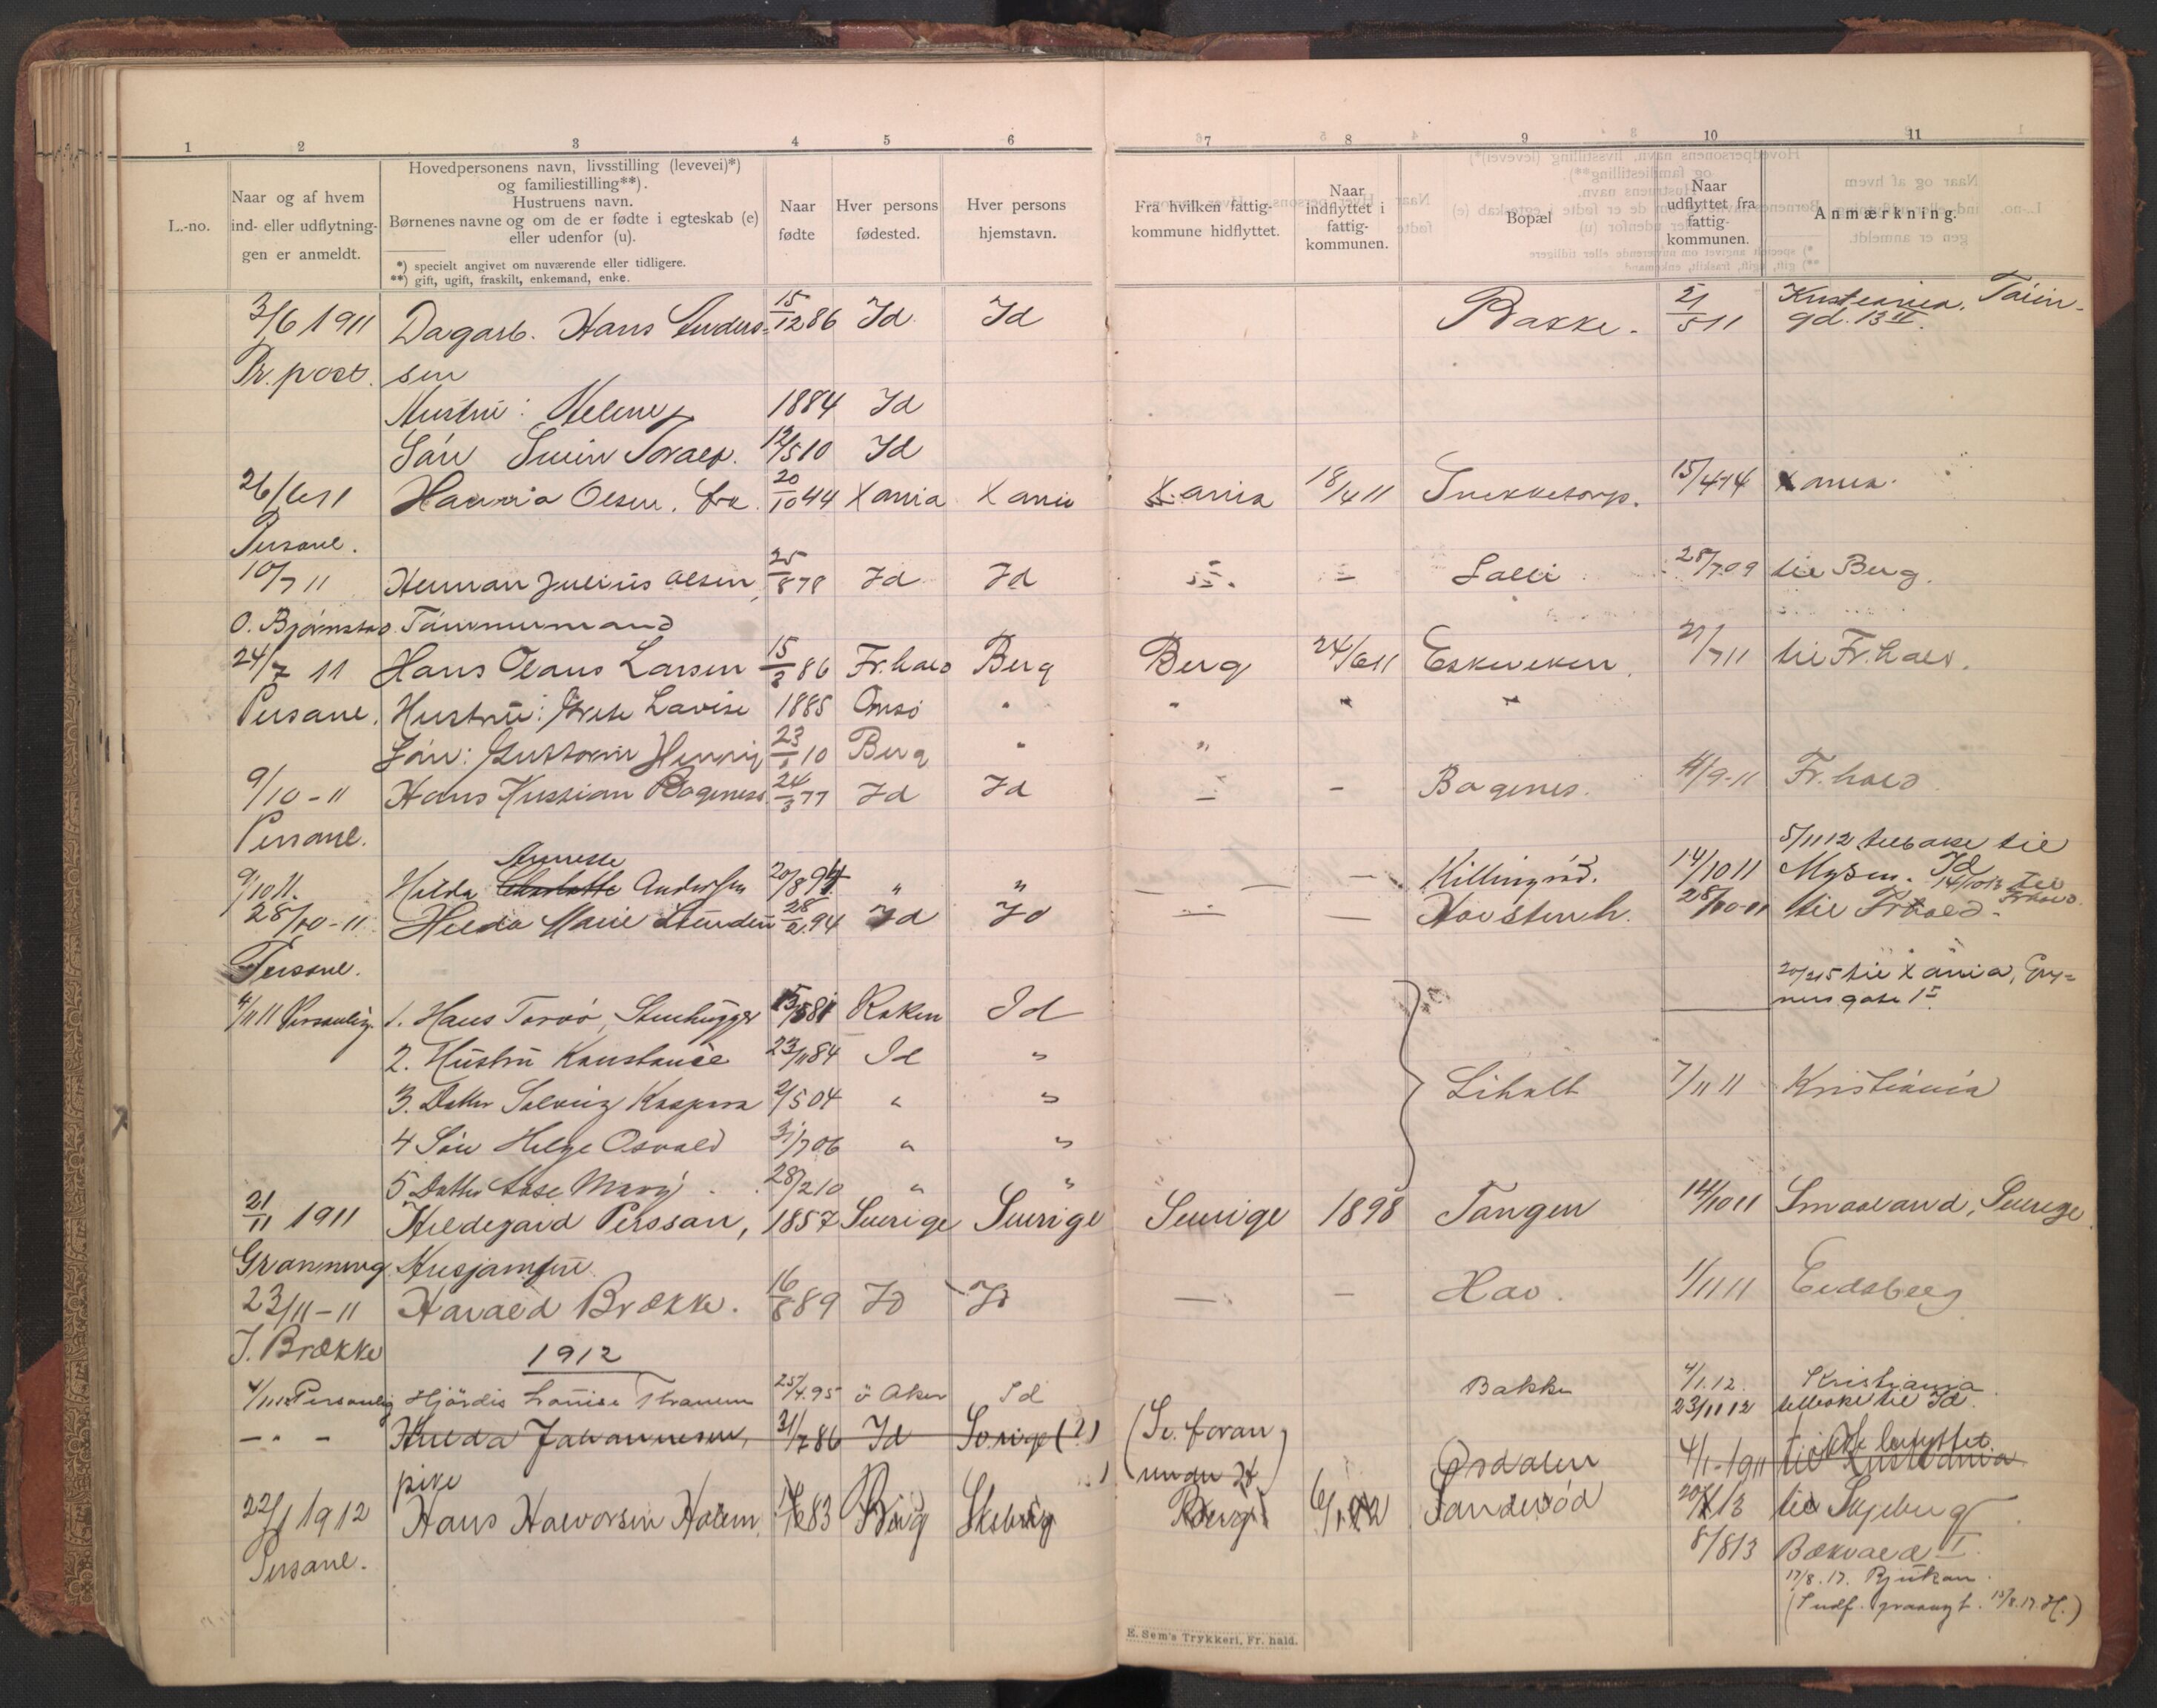 1 2 3 4 5 6 7 8 9 10 11
L.-no.
Naar og af hvem ind- eller udflytningen er anmeldt.
Hovedpersonens navn, livsstilling (levevei)*)
og familiestilling**).
Hustruens navn.
Børnenes navne og om de er fødte i egteskab (e)
eller udenfor (u).
*) specielt angivet om nuværende eller tidligere.
**) gift, ugift, fraskilt, enkemand, enke.
Naar fødte
Hver persons fødested.
Hver persons hjemstavn.
Fra hvilken fattigkommune hidflyttet.
Naar indflyttet i fattigkommunen.
Bopæl
Naar udflyttet fra fattigkommunen.
Anmærkning.
3/6 1911 Dagarb. Hans Anders- 15/12 86 Id Id Bakke. 2/5 11 Kristiania, Tøien-
Pr. post. sen gd. 13 II.
Hustru: Helene 1884 Id
Søn Svein Toralf. 12/5 10 Id
26/6 11 Hanna Olsen, frk. 20/10 44 Xania Xania Xania 18/4 11 Snekketorp. 15/4 14 Xania.
Personl.
10/7 11 Herman Julius Olsen, 25/8 78 Id Id — — Lalli 28/7 09 til Berg.
O. Bjørnstad Tømmermand
24/7 11 Hans Olaus Larsen 15/3 86 Fr.hald Berg Berg 24/6 11 Eskeviken 21/7 11 til Fr.hald.
Personl. Hustru: Grete Lovise 1885 Onsø " " " "
Søn: Guttorm Henrik 23/1 10 Berg " "
9/10-11 Hans Kristian Bogenes 24/3 77 Id Id — — Bogenes. 4/9-11 Fr.hald
Personl.
5/11 12 tilbake til
Annette
9/10 11. Hilda Charlotte Andersen 20/8 94 " " — — — Killingrød. 14/10 11 Mysen. Id
14/10 13 til Fr.hald.
28/10-11 Hilda Marie Stenden 28/2 94 Id Id — — Kovstenh. 28/10-11 til Fr.hald.
Personl.
20/2 15 til Xania, Grü-
ners gate 1
4/11 11 Personlig. 1. Hans Torvø, Stenhugger 15/5 81 Roken Id
2. Hustru Konstance 23/11 84 Id "
3. Datter Solveig Kaspara 2/5 04 " " Liholt 7/11 11 Kristiania
4 Søn Helge Osvald 31/7 06 " "
5 Datter Aase Mary 28/2 10 " "
21/11 1911 Hildegard Persson, 1857 Sverige Sverige Sverige 1898 Tangen 14/10 11 Smaaland, Sverige.
Grønning Husjomfru
23/11-11 Harald Brække. 16/8 89 Id Id — — Hov. 1/11 11 Eidsberg
J. Brække
1912
4/1 12 Personlig Hjördis Lovise Thranum 25/4.95 ö Aker Id Bakke 4/1.12. Kristiania
23/11 12 tilbake til Id.
— " — Hulda Johannesen, 31/7 86 Id Sverige (?) (Se foran under 24) Ordalen 4/1-1911 til Kristiania
ikke utflyttet.
pike
22/1 1912 Hans Halvorsen Holem 83 Berg Skeberg Berg 6/1 12 Sanderød 20/1 13 til Skjeberg
Personl. 8/8 13 Bakvald I.
17/8.17. Rjukan.